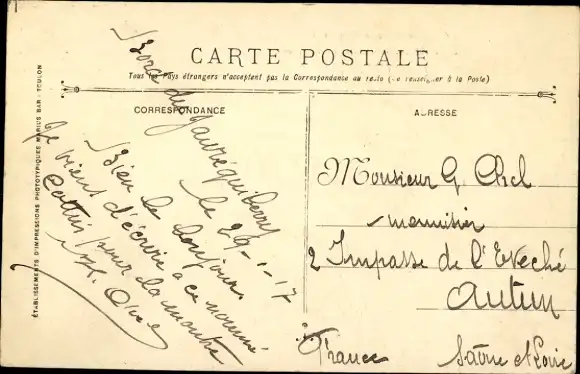 CARTE POSTALE
Tous les Pays étrangers n'acceptent pas la Correspondance au recto (se renseigner à la Poste)
CORRESPONDANCE
Bord du Jauréguiberry
le 29-1-17
Bien le bonjour.
Je viens d'écrire à ce nommé
pour la montre
ADRESSE
Monsieur G.
menuisier
2 Impasse de l'Eveché
Autun
France
Saône et Loire
ÉTABLISSEMENTS D'IMPRESSIONS PHOTOTYPIQUES MARIUS BAR - TOULON